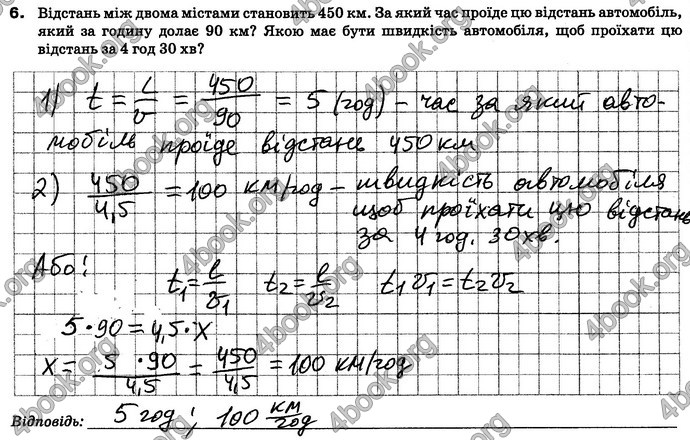 6. Відстань між двома містами становить 450 км. За який час проїде цю відстань автомобіль,
який за годину долає 90 км? Якою має бути швидкість автомобіля, щоб проїхати цю
відстань за 4 год 30 хв?
1) t = l/v = 450/90 = 5 (год) – час за який авто-
мобіль проїде відстань 450 км
2) 450/4,5 = 100 км/год – швидкість автомобіля
щоб проїхати цю відстань
за 4 год. 30 хв.
Або:
t₁ = l/v₁ t₂ = l/v₂ t₁v₁ = t₂v₂
5·90 = 4,5·x
x = 5·90/4,5 = 450/4,5 = 100 км/год
Відповідь: 5 год ; 100 км/год
4book.org